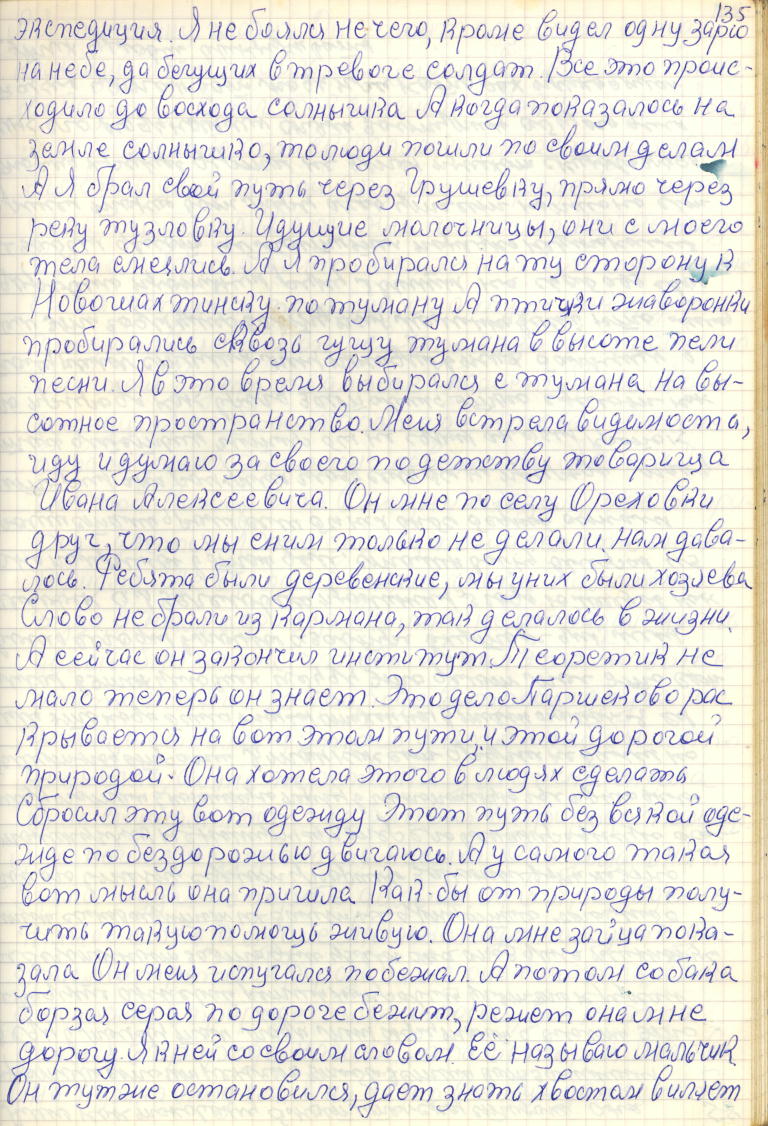 135
экспедиция. Я не боялся не чего, кроме видел одну зарю
на небе, да бегущих в тревоге солдат. Все это проис-
ходило до восхода солнышка А когда показалось на
земле солнышко, то люди пошли по своим делам
А я брал свой путь через Грушевку, прямо через
реку тузловку. Идущие молочницы, они с моего
тела смеялись. А я пробирался на ту сторону к
Новошахтинску по туману А птички жаворонки
пробирались сквозь гущу тумана в высоте пели
песни. Я в это время выбирался с тумана на вы-
сотное пространство. Меня встрела видимоста,
иду и думаю за своего по детству товарища
Ивана Алексеевича. Он мне по селу Ореховки
друг, что мы с ним только не делали, нам дава-
лось. Ребята были деревенские, мы у них были хозяева
Слово не брали из кармана, так делалось в жизни.
А сейчас он закончил институт. Теоретик не
мало теперь он знает. Это дело Паршеково рас
крывается на вот этом пути, и этой дорогой
природой. Она хотела этого в людях сделать
Сбросил эту вот одежду Этот путь без всякой оде-
жде по бездорожью двигаюсь. А у самого такая
вот мысль она пришла Как-бы от природы полу-
чить такую помощь живую. Она мне зайца пока-
зала Он меня испугался побежал. А потом собака
борзая серая по дороге бежит, режет она мне
дорогу. Я к ней со своим словом. Её называю мальчик
Он тут же остановился, дает знать хвостом виляет